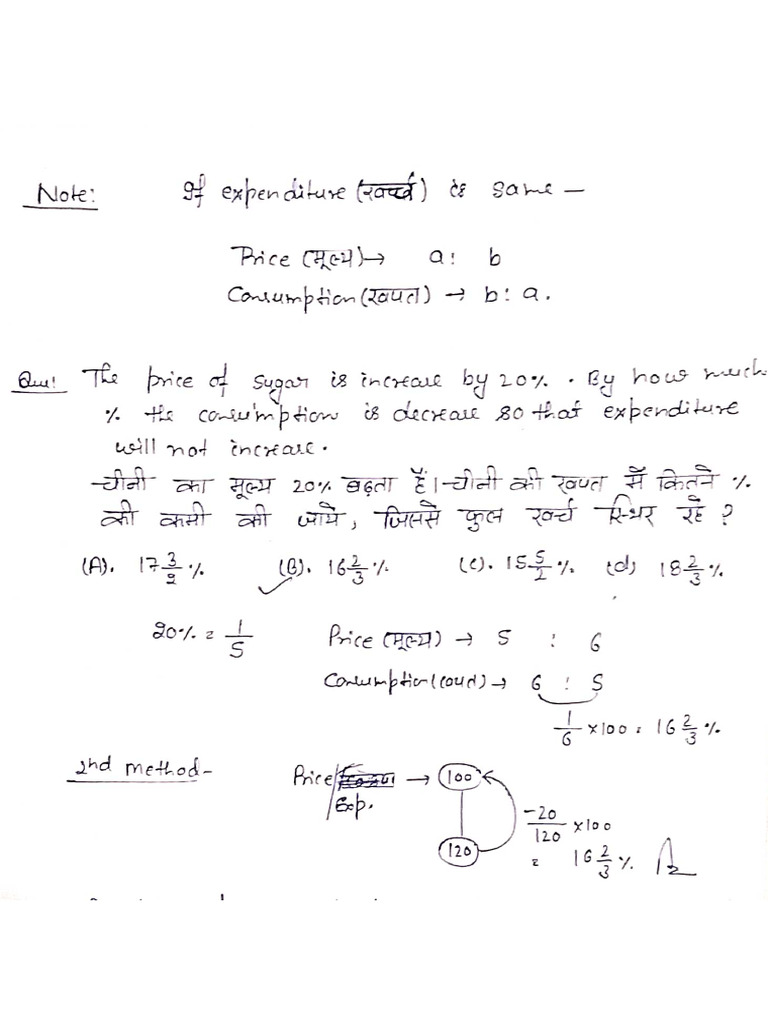 Note: If expenditure (खर्च) is same —
Price (मूल्य) → a : b
Consumption (खपत) → b : a.
Que: The price of sugar is increase by 20% . By how much
% the consumption is decrease so that expenditure
will not increase.
चीनी का मूल्य 20% बढ़ता है। चीनी की खपत में कितने %
की कमी की जाये, जिससे कुल खर्च स्थिर रहे ?
(A). 17 3/2 % (B). 16 2/3 % (C). 15 5/2 % (d) 18 2/3 %
20% = 1/5 Price (मूल्य) → 5 : 6
Consumption (खपत) → 6 : 5
1/6 × 100 = 16 2/3 %
2nd method - Price/ → 100
Exp.
-20/120 × 100
120
= 16 2/3 %